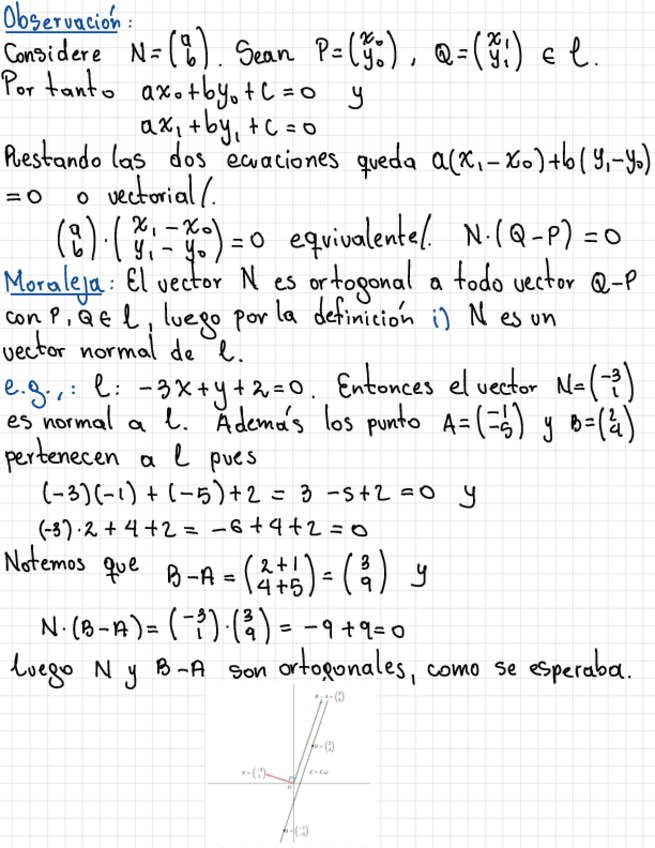 Observación:
Considere N=(a b). Sean P=(x₀ y₀), Q=(x₁ y₁) ∈ ℓ.
Por tanto ax₀+by₀+c=0 y
ax₁+by₁+c=0
Restando las dos ecuaciones queda a(x₁-x₀)+b(y₁-y₀)
=0 o vectorial/.
(a b)·(x₁-x₀ y₁-y₀)=0 equivalente/. N·(Q-P)=0
Moraleja: El vector N es ortogonal a todo vector Q-P
con P, Q ∈ ℓ, luego por la definición i) N es un
vector normal de ℓ.
e.g.,: ℓ: -3x+y+2=0. Entonces el vector N=(-3 1)
es normal a ℓ. Además los punto A=(-1 -5) y B=(2 4)
pertenecen a ℓ pues
(-3)(-1)+(-5)+2 = 3-5+2=0 y
(-3)·2+4+2=-6+4+2=0
Notemos que B-A=(2+1 4+5)=(3 9) y
N·(B-A)=(-3 1)·(3 9)=-9+9=0
luego N y B-A son ortogonales, como se esperaba.